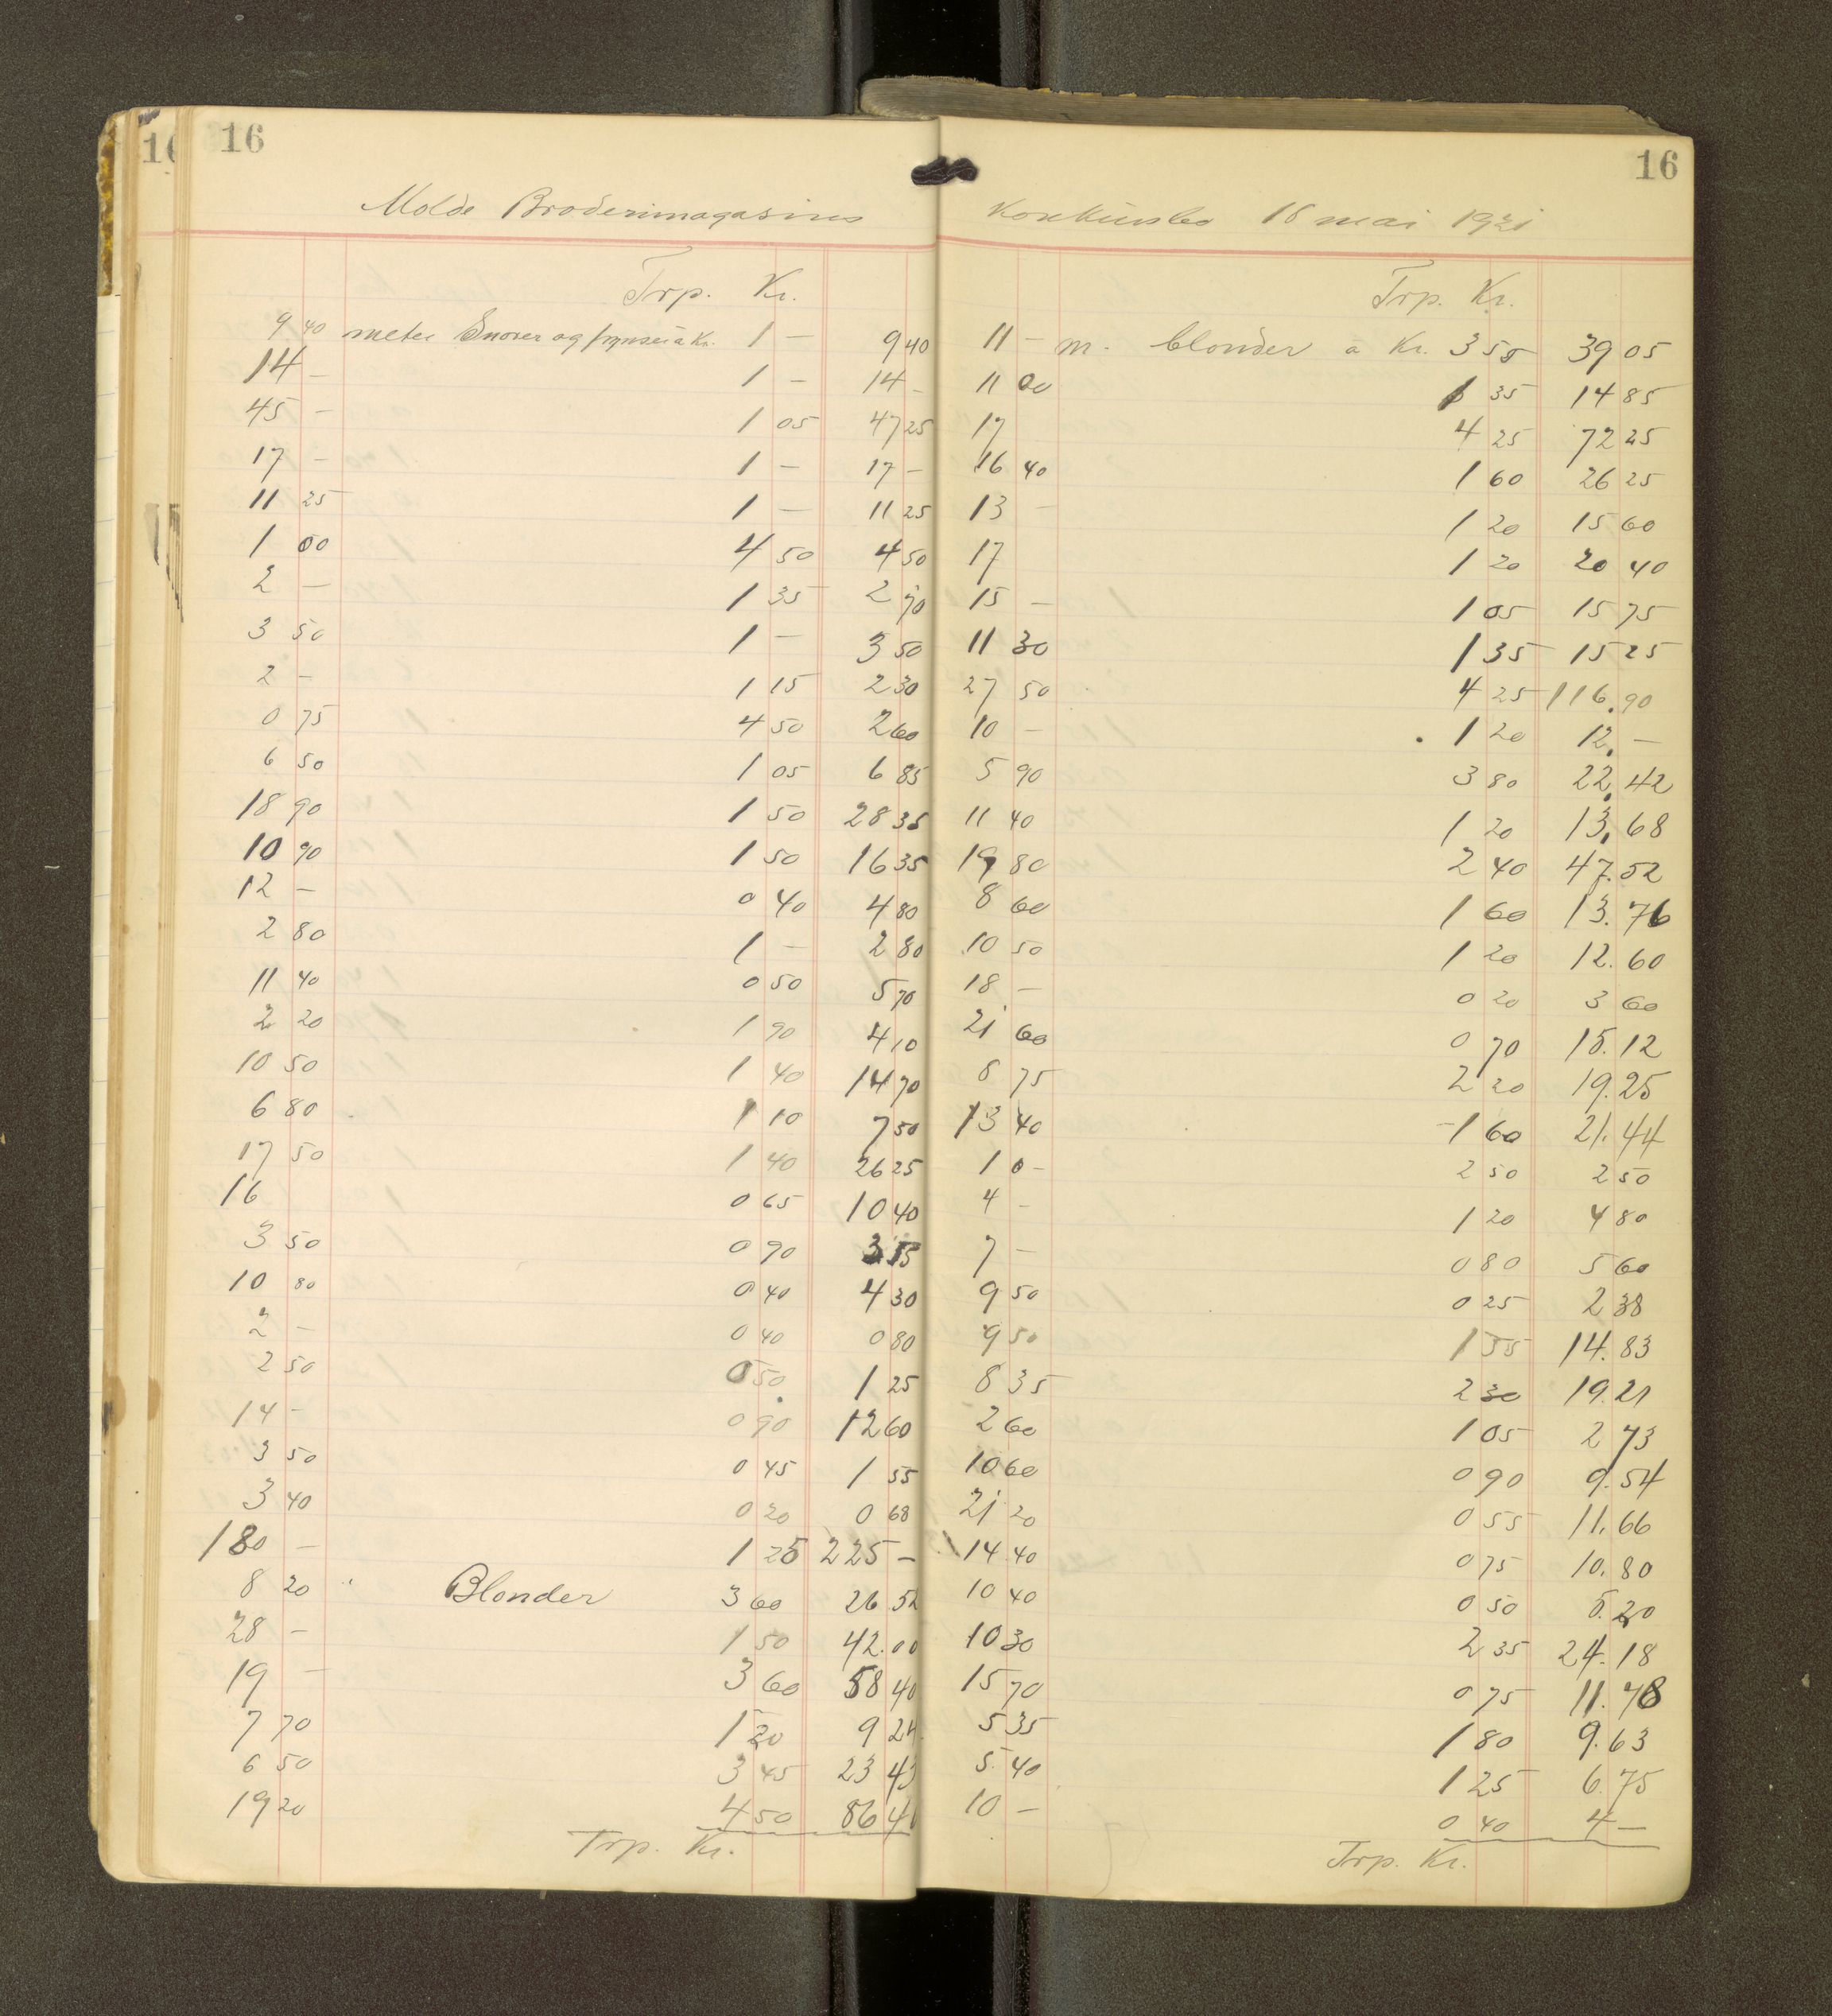 16
Molde Broderimagasins
Trp. Kr.
9 40 meter Snorer og frynser à Kr. 1 - 9 40
14 - 1 - 14 -
45 - 1 05 47 25
17 - 1 - 17 -
11 25 1 - 11 25
1 00 4 50 4 50
2 - 1 35 2 70
3 50 1 - 3 50
2 - 1 15 2 30
0 75 4 50 2 60
6 50 1 05 6 85
18 90 1 50 28 35
10 90 1 50 16 35
12 - 0 40 4 80
2 80 1 - 2 80
11 40 0 50 5 70
2 20 1 90 4 10
10 50 1 40 14 70
6 80 1 10 7 50
17 50 1 40 26 25
16 0 65 10 40
3 50 0 90 3 15
10 80 0 40 4 30
2 - 0 40 0 80
2 50 0 50 1 25
14 - 0 90 12 60
3 50 0 45 1 55
3 40 0 20 0 68
180 - 1 25 225 -
8 20 " Blonder 3 60 26 52
28 - 1 50 42.00
19 - 3 60 58 40
7 70 1 20 9 24
6 50 3 45 23 43
19 20 4 50 86 4
Trp. Kr.
16
Konkursbo 18 mai 1921
Trp. Kr.
11 - m. blonder a Kr. 3 55 39 05
11 00 1 35 14 85
17 4 25 72 25
16 40 1 60 26 25
13 - 1 20 15 60
17 1 20 20 40
15 - 1 05 15 75
11 30 1 35 15 25
27 50 4 25 116.90
10 - 1 20 12. -
5 90 3 80 22.42
11 40 1 20 13.68
19 80 2 40 47.52
8 60 1 60 13.76
10 50 1 20 12.60
18 - 0 20 3 60
21 60 0 70 15.12
8 75 2 20 19.25
13 40 1 60 21.44
1 0- 2 50 2 50
4 - 1 20 4 80
7 - 0 80 5 60
9 50 0 25 2 38
9 50 1 55 14.83
8 35 2 30 19.21
2 60 1 05 2 73
10 60 0 90 9.54
21 20 0 55 11.66
14 40 0 75 10.80
10 40 0 50 5.20
10 30 2 35 24.18
15 70 0 75 11.78
5 35 1 80 9.63
5 40 1 25 6.75
10 - 0 40 4 -
Trp. Kr.